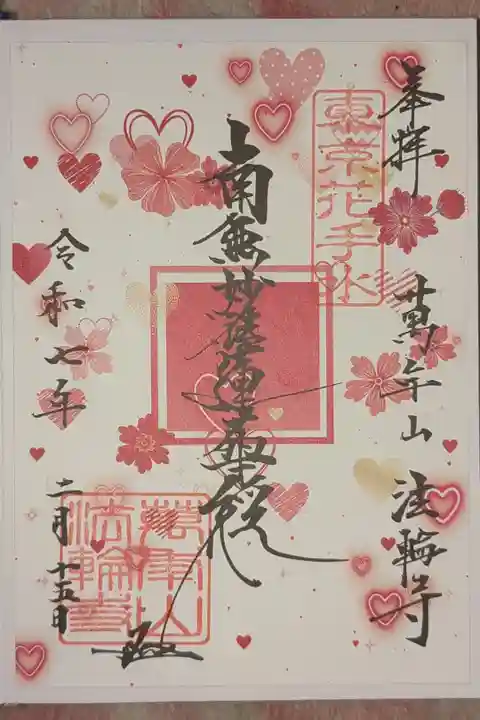 奉拝
東京花手水
萬年山 法輪寺
南無妙法蓮華経
令和七年
二月十五日
萬年山
法輪寺